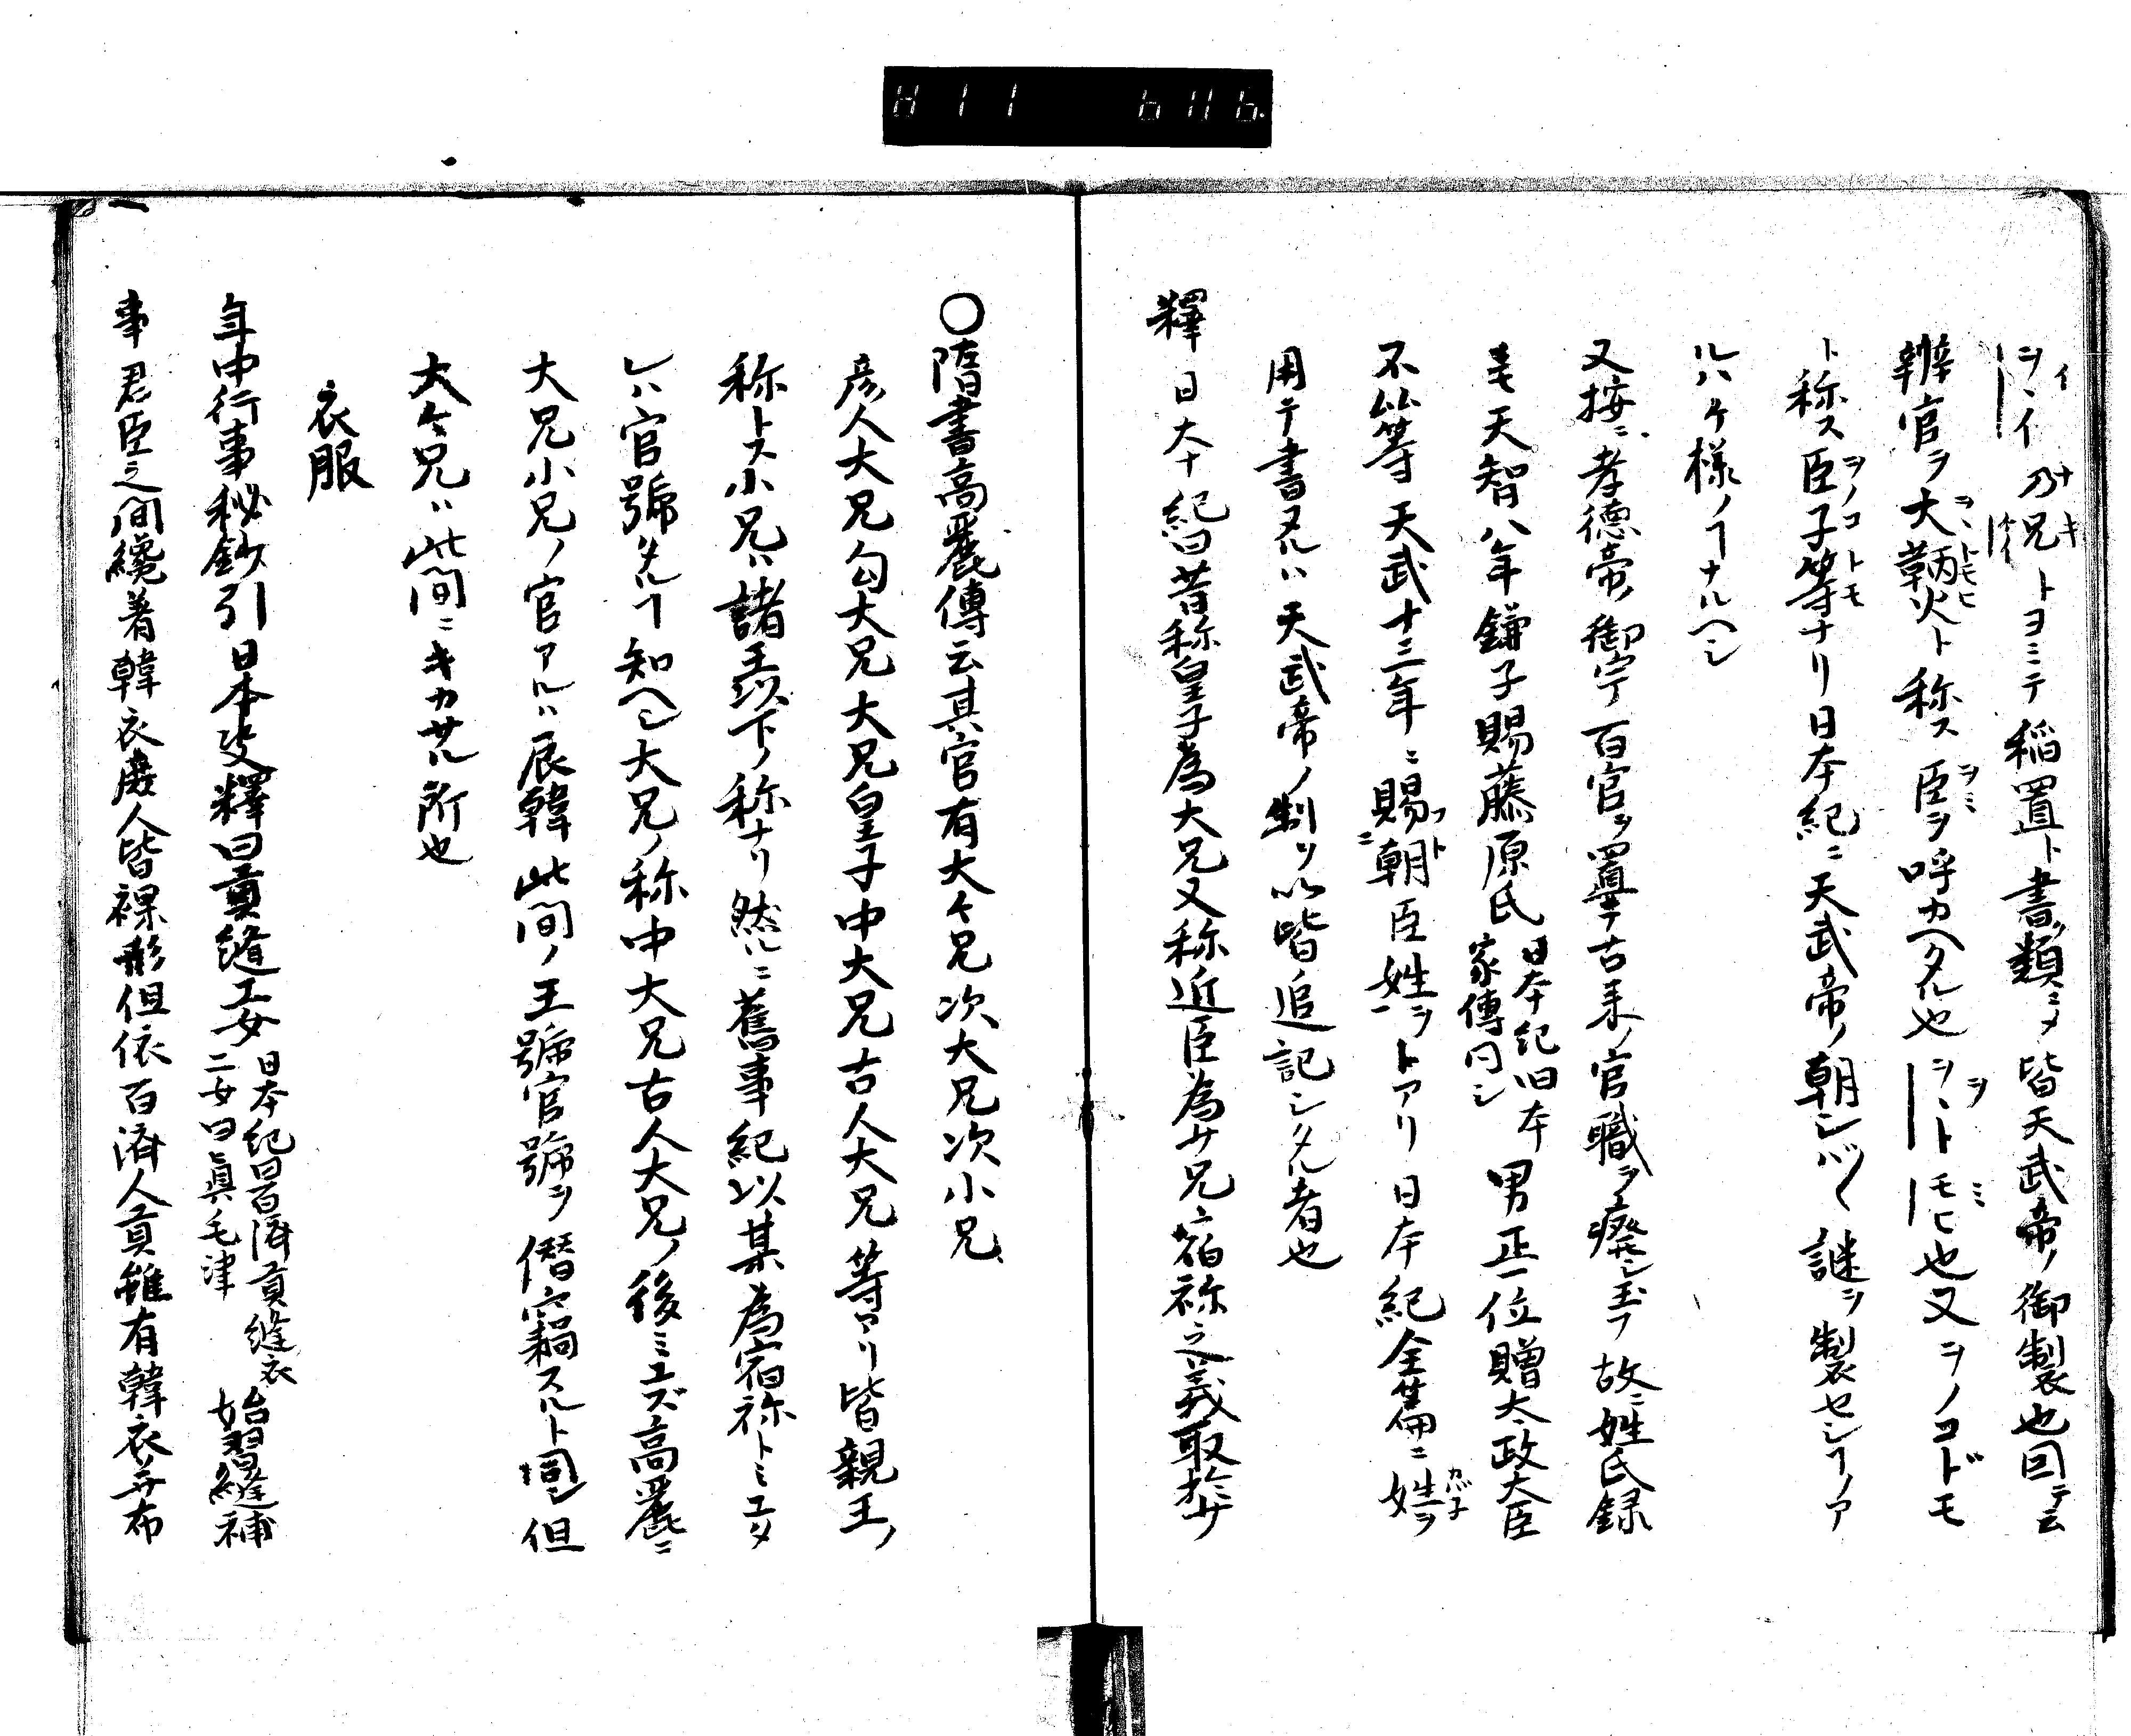 ヲヽイ乃兄トヨミテ稲置ト書ノ類ミタ皆天武帝ノ御製也回テ云
辨官ヲ大鞆火ト称ス臣ヲ呼カヘタル也ヲヽトモヒ也又ヲノコドモ
ト称ス臣子等ナリ日本紀ニ天武帝ノ朝シバ〱謎ヲ製セシヿノア
ルハケ様ノヿナルヘシ
又按ニ孝徳帝ノ御宇百官ヲ置テ古来ノ官職ヲ癈シ玉フ故ニ姓氏録
ニモ天智八年鎌子賜藤原氏
日本紀旧本
家傳同シ
男正一位贈太政大臣
不比等天武十三年ニ賜朝臣姓ヲトアリ日本紀全篇ニ姓ヲ
用テ書タルハ天武帝ノ制ヲ以皆追記シタル者也
釋日本紀曰昔称皇子為大兄又称近臣為少兄宿祢之義取於少
〇隋書高麗傳云其官有大々兄次大兄次小兄
彦人大兄勾大兄大兄皇子中大兄古人大兄等アリ皆親王ノ
称トス小兄ハ諸王以下ノ称ナリ然ルニ舊事紀以某為宿祢トミエタ
レハ官號タルヿ知ヘシ大兄ノ称中大兄古人大兄ノ後ミエズ高麗ニ
大兄小兄ノ官アルハ辰韓此間ノ王號官號ヲ僭竊スルト同シ但
大々兄ハ此間ニキカサル所也
衣服
年中行事秘鈔引日本决釋曰貢縫工女
日本紀曰百済貢縫衣
二女曰眞毛津
始習縫補
事君臣之間纔着韓衣庶人皆裸形但依百済人貢雖有韓衣并布